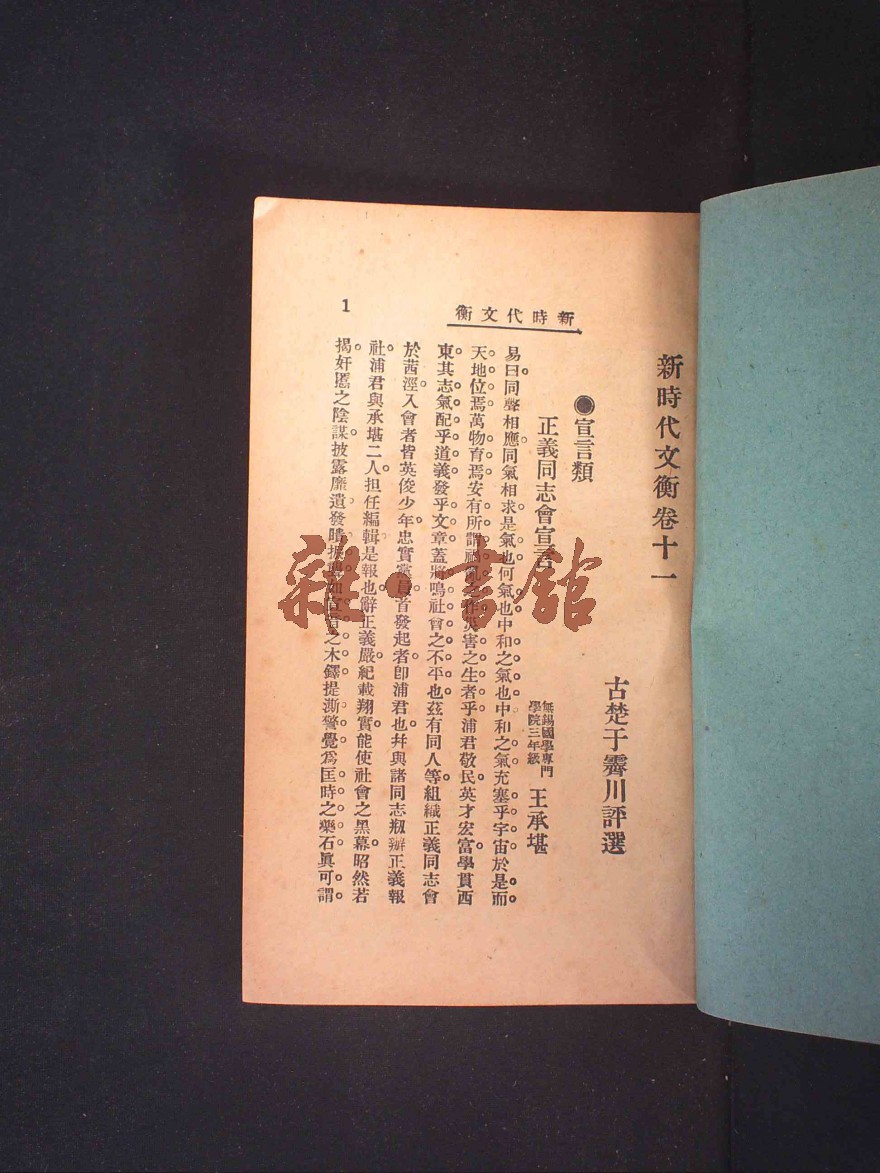 新時代文衡卷十一
古楚于霽川評選
●宣言類
正義同志會宣言
無錫國學專門
學院三年級
王承堪
易曰同聲相應同氣相求是氣也何氣也中和之氣也中和之氣充塞乎宇宙於是而
天地位焉萬物育焉安有所謂禍亂之作災害之生者乎浦君敬民英才宏富學貫西
東其志氣配乎道義發乎文章蓋將鳴社會之不平也茲有同人等組織正義同志會
於茜涇入會者皆英俊少年忠實黨員首發起者卽浦君也幷與諸同志刱辦正義報
社浦君與承堪二人担任編輯是報也辭正義嚴紀載翔實能使社會之黑幕昭然若
揭奸慝之陰謀披露靡遺發聵振聾如宣言之木鐸提撕警覺爲匡時之藥石眞可謂
新時代文衡
1
雜·書館